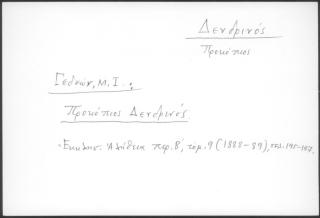 Δενδρινός
Προκόπιος
Γεδεών, Μ. Ι. :
Προκόπιος Δενδρινός.
Εκκλησ. Ἀλήθεια περ. Β', τόμ. 9 (1888-89), σελ. 195-197.